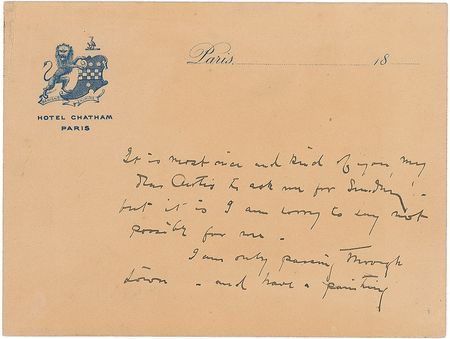 HOTEL CHATHAM
PARIS
Paris, 18
It is most nice and kind of you, my
dear Curtis to ask me for Sunday! -
but it is I am sorry to say not
possible for me -
I am only passing through
town - and have a painting